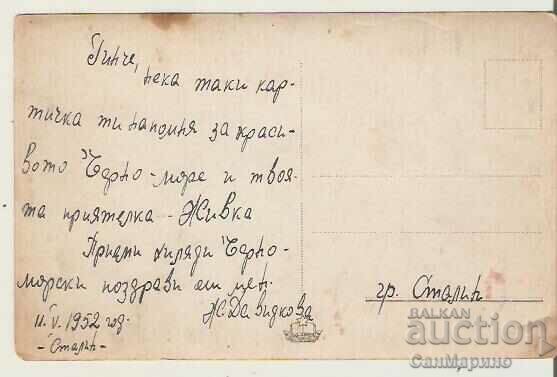 Гинче,
нека таки кар-
тичка ти напомня за краси-
вото Черно-море и твоя-
та приятелка - Живка
Приеми хиляди Черно-
морски поздрави от мен.
Ж. Давидкова
11. V. 1952 год.
- Сталин -
гр. Сталин
БАЛКАН
auction
СанМарино